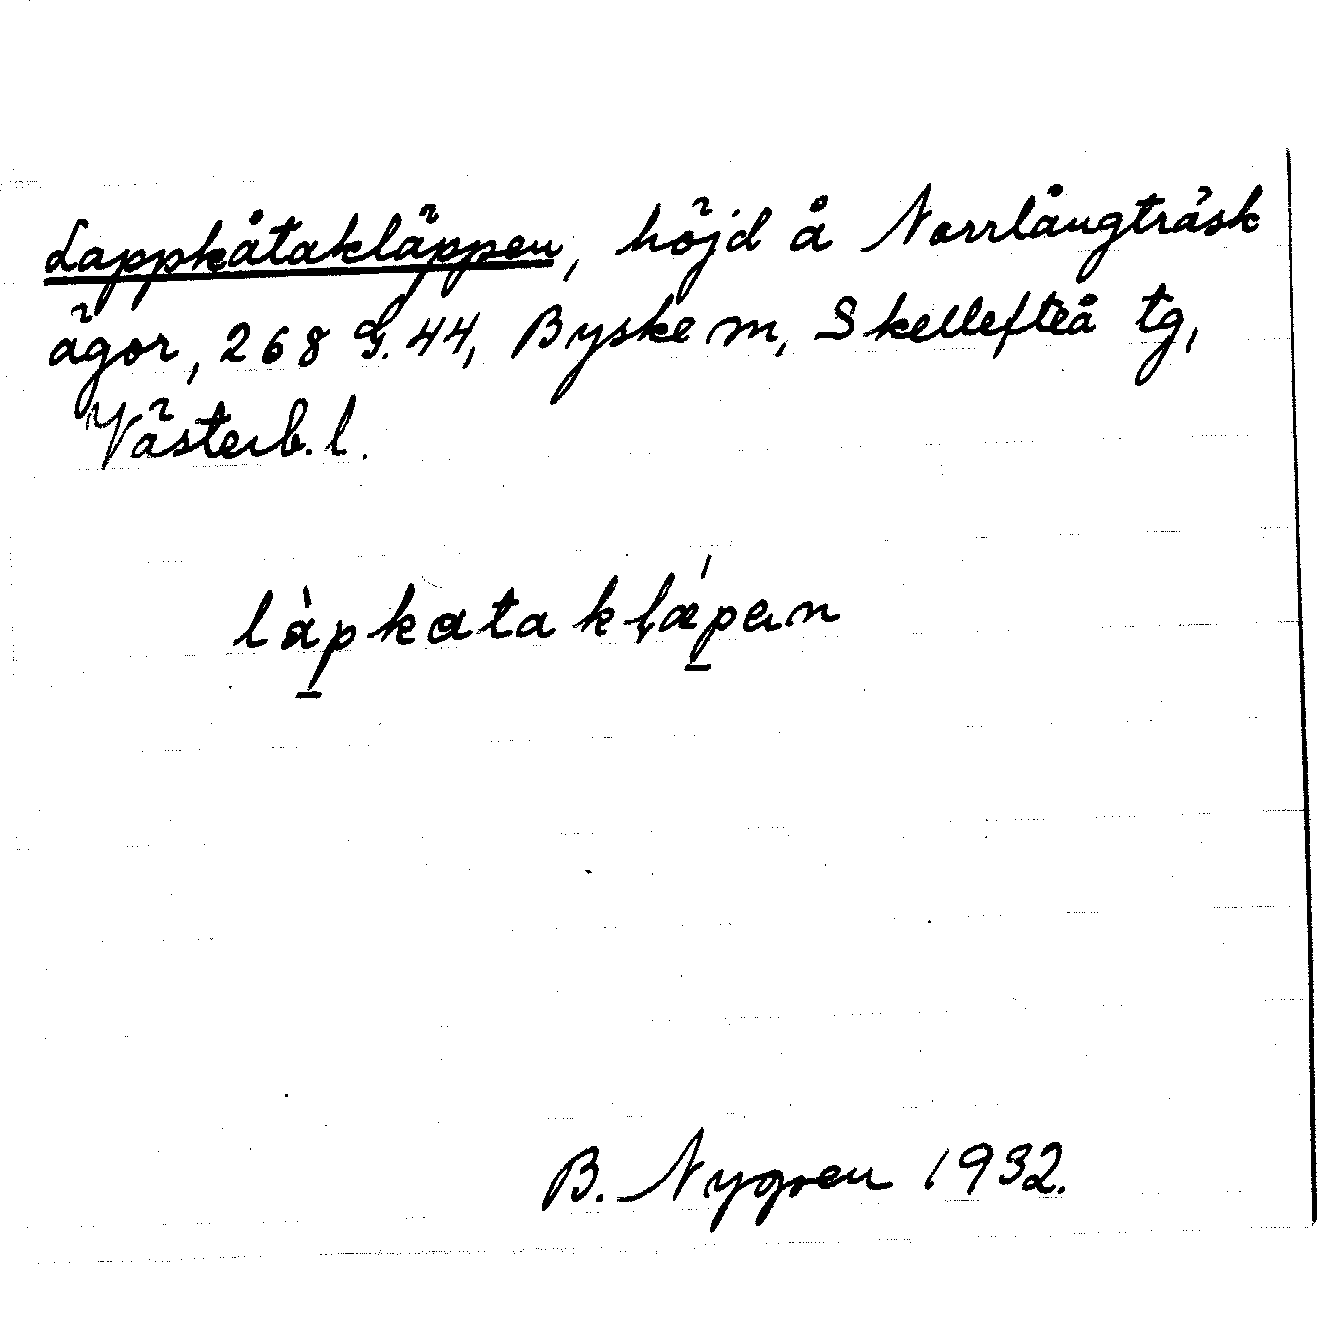 Lappkåtakläppen, höjd å Norrlångträsk
ägor, 268 G. 44, Byske sn, Skellefteå tg,
Västerb. l.
làpkataklǽpen
B. Nygren 1932.